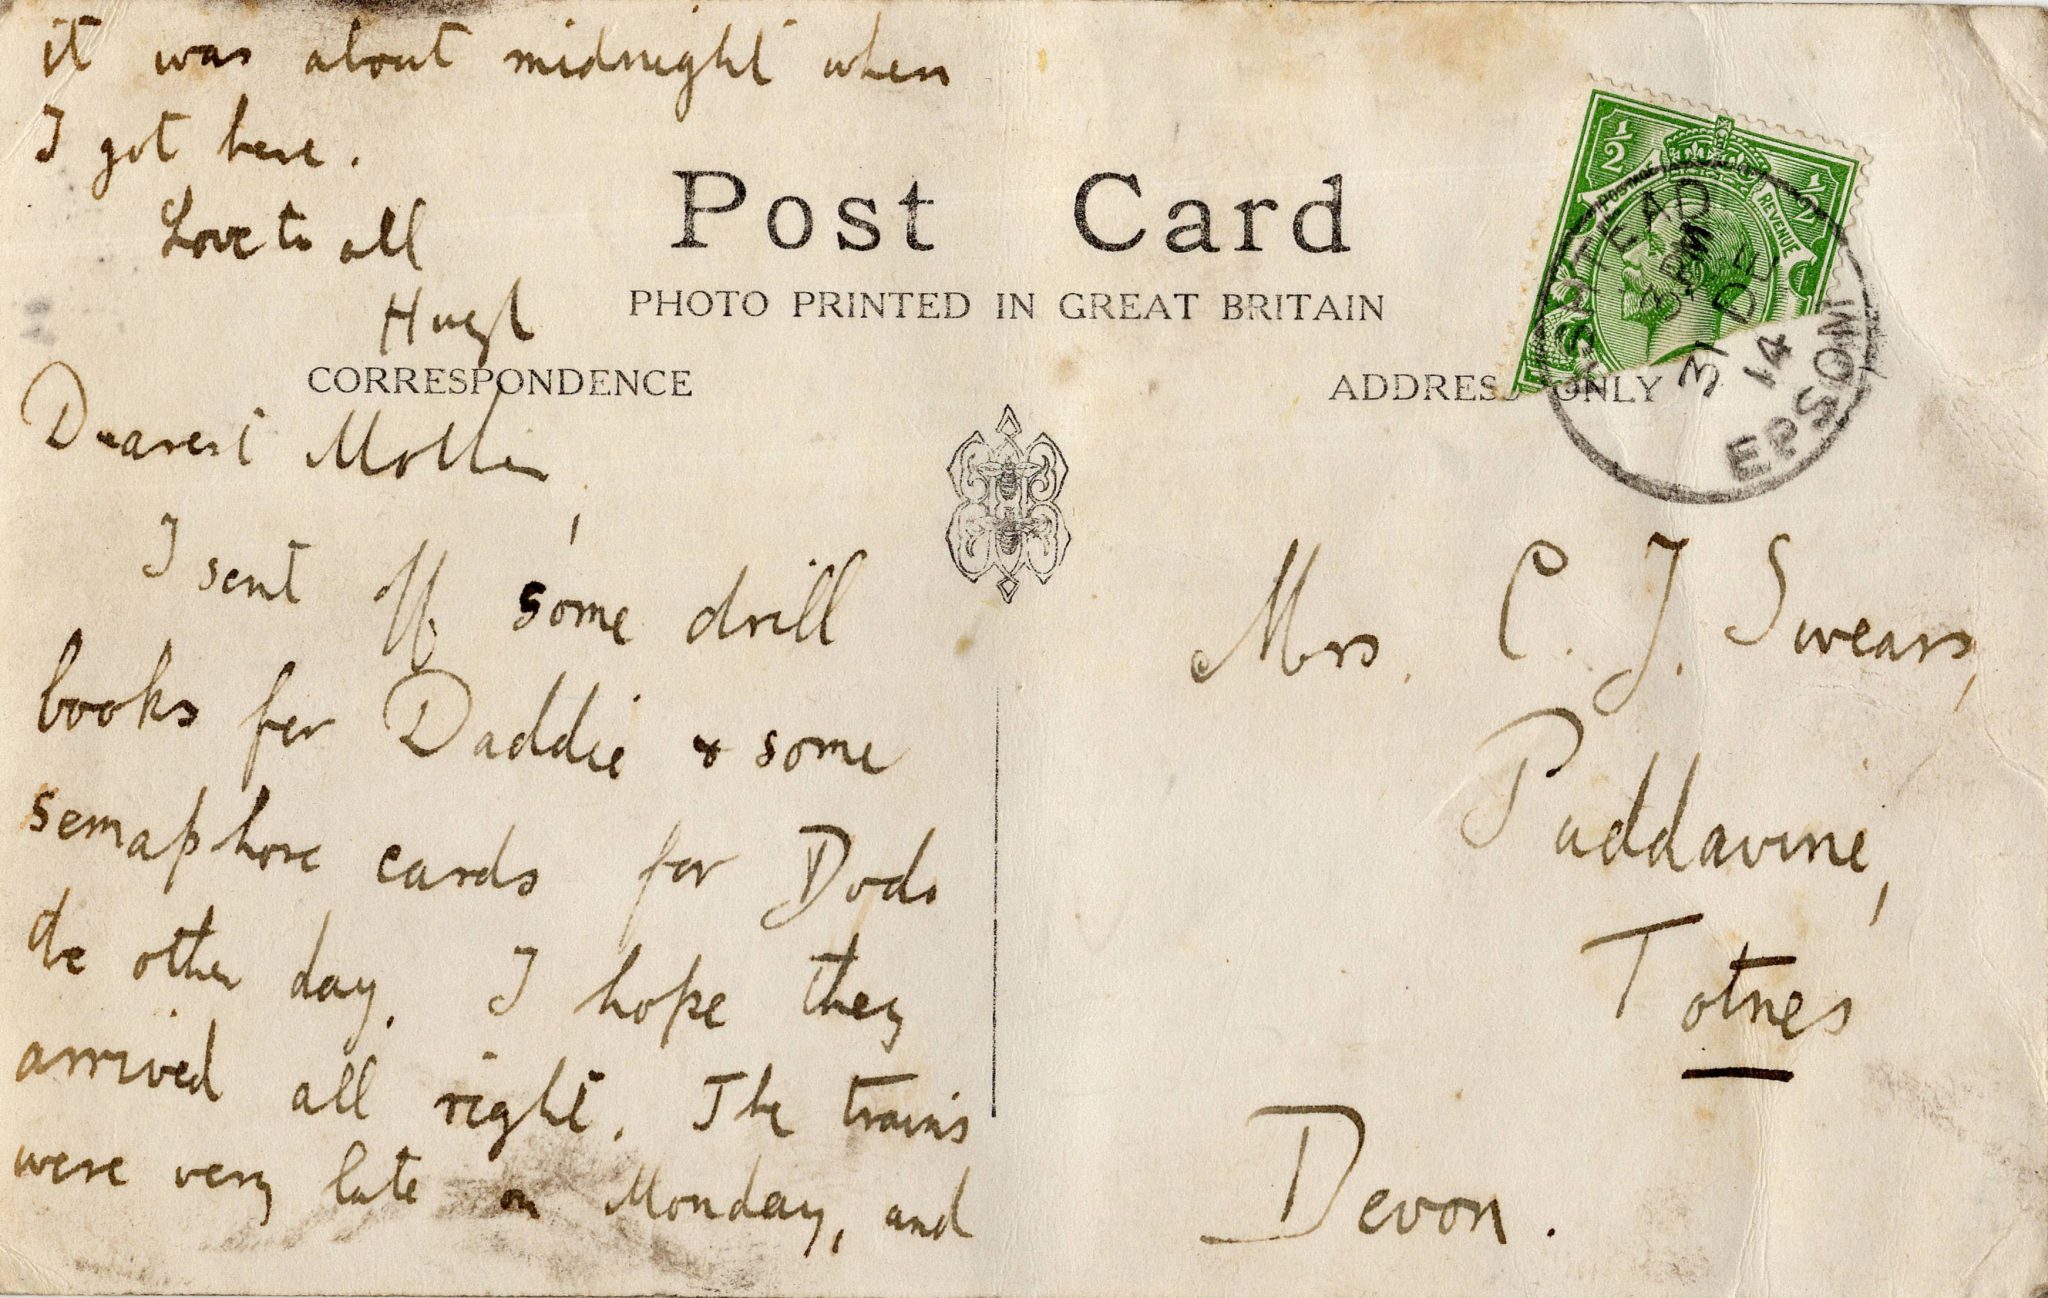 it was about midnight when
I got here.
Love to all
Hugh
Post Card
PHOTO PRINTED IN GREAT BRITAIN
CORRESPONDENCE
ADDRESS ONLY
Dearest Mother,
I sent off some drill
books for Daddie & some
semaphore cards for Dods
the other day. I hope they
arrived all right. The trains
were very late on Monday, and
½
½
POSTAGE
REVENUE
PM
31 DE
14
EPSOM
Mrs. C. J. Swears,
Puddavine,
Totnes
Devon.